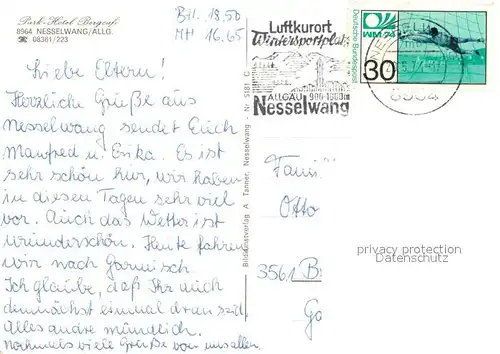 Park-Hotel Bergcafé
8964 NESSELWANG/ALLG.
☎ 08361/223
BH. 18.50
MH 16.65
Luftkurort
Wintersportplatz
ALLGÄU 900-1600m
Nesselwang
Deutsche Bundespost
WM 74
30
8964
Liebe Eltern!
Herzliche Grüße aus
Nesselwang sendet Euch
Manfred u. Erika. Es ist
sehr schön hier, wir haben
in diesen Tagen sehr viel
vor. Auch das Wetter ist
wunderschön. Heute fahren
wir nach Garmisch.
Ich glaube, daß Ihr auch
demnächst einmal dran seid.
Alles andre mündlich.
Nochmals viele Grüße von uns allen
Bildkunstverlag A. Tanner, Nesselwang - Nr. 5181 C
Otto
3561
privacy protection
VINTAGE